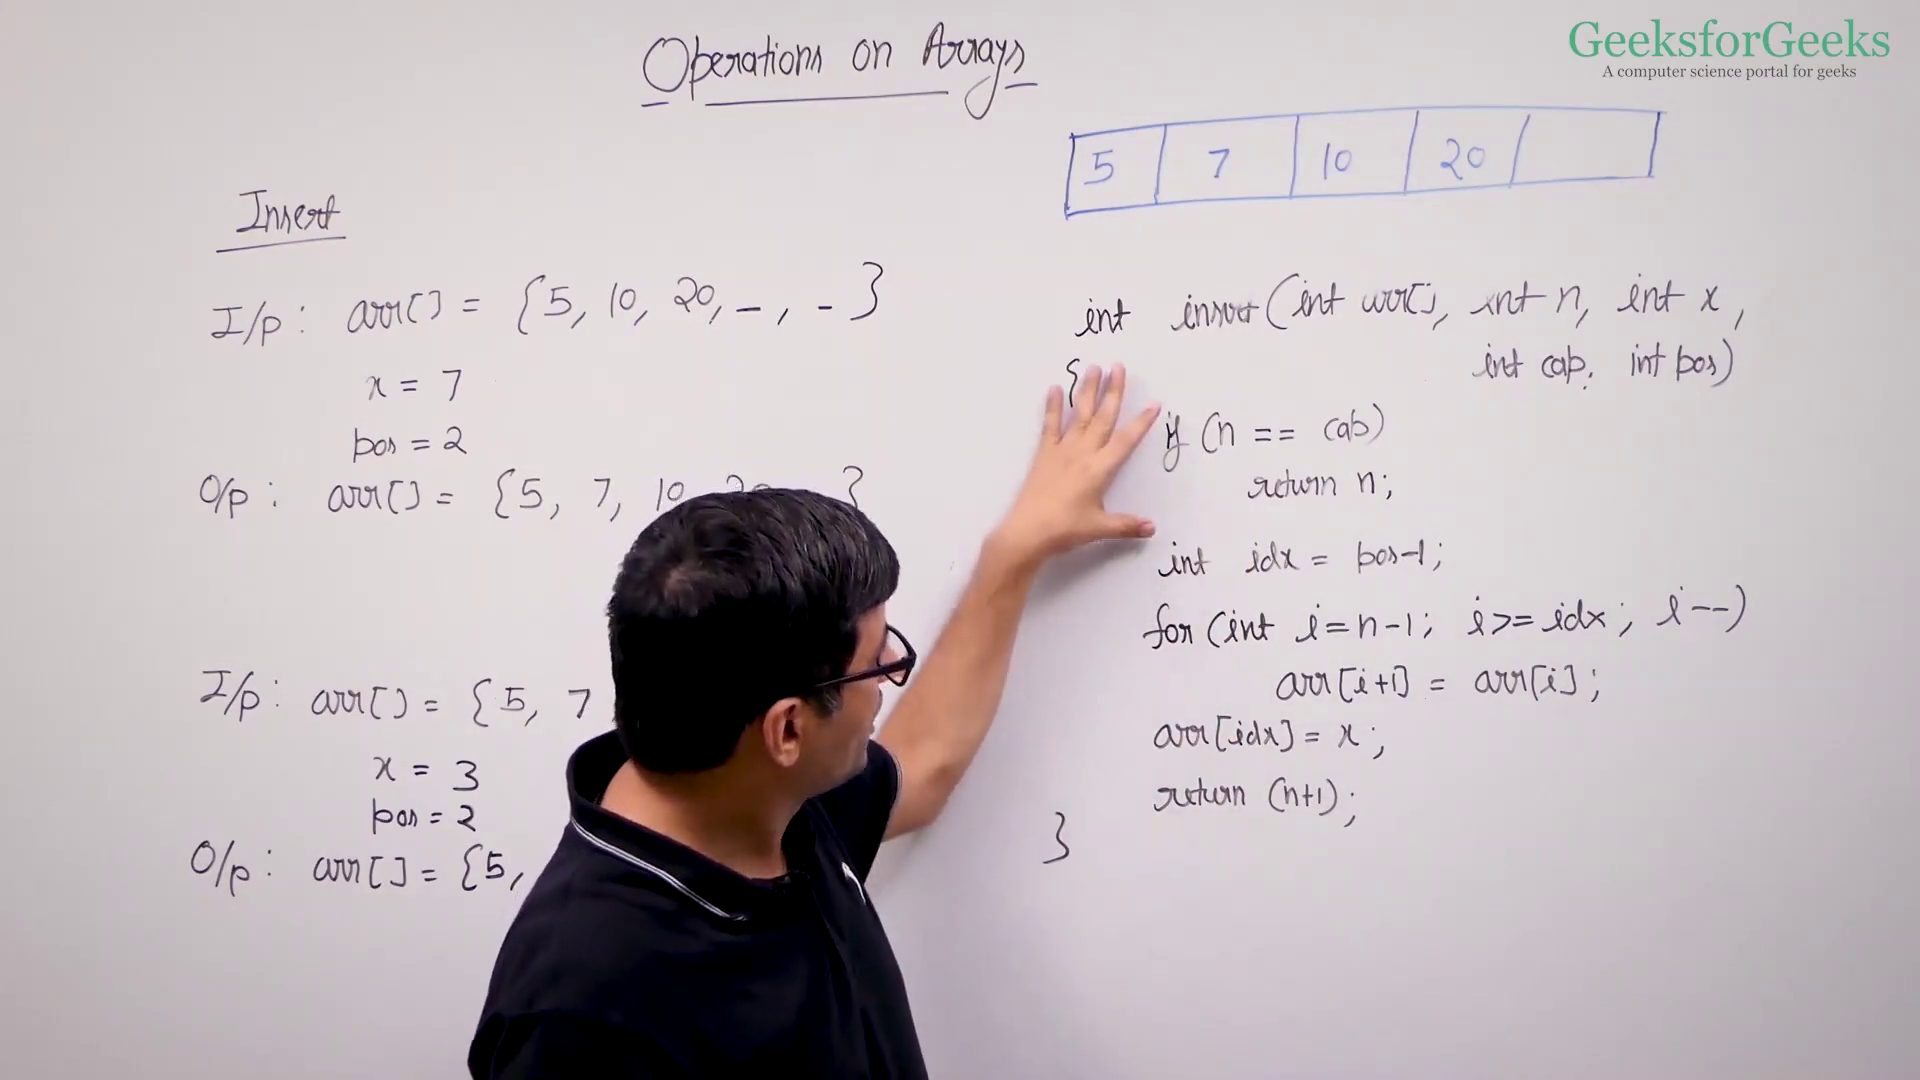 GeeksforGeeks
A computer science portal for geeks
Operations on Arrays
5 7 10 20
Insert
I/p : arr[] = {5, 10, 20, _ , _ }
x = 7
pos = 2
O/p : arr[] = {5, 7, 10 }
I/p : arr[] = {5, 7
x = 3
pos = 2
O/p : arr[] = {5,
int insert(int arr[], int n, int x,
int cap, int pos)
{
if (n == cap)
return n;
int idx = pos-1;
for (int i=n-1; i>=idx; i--)
arr[i+1] = arr[i];
arr[idx] = x;
return (n+1);
}